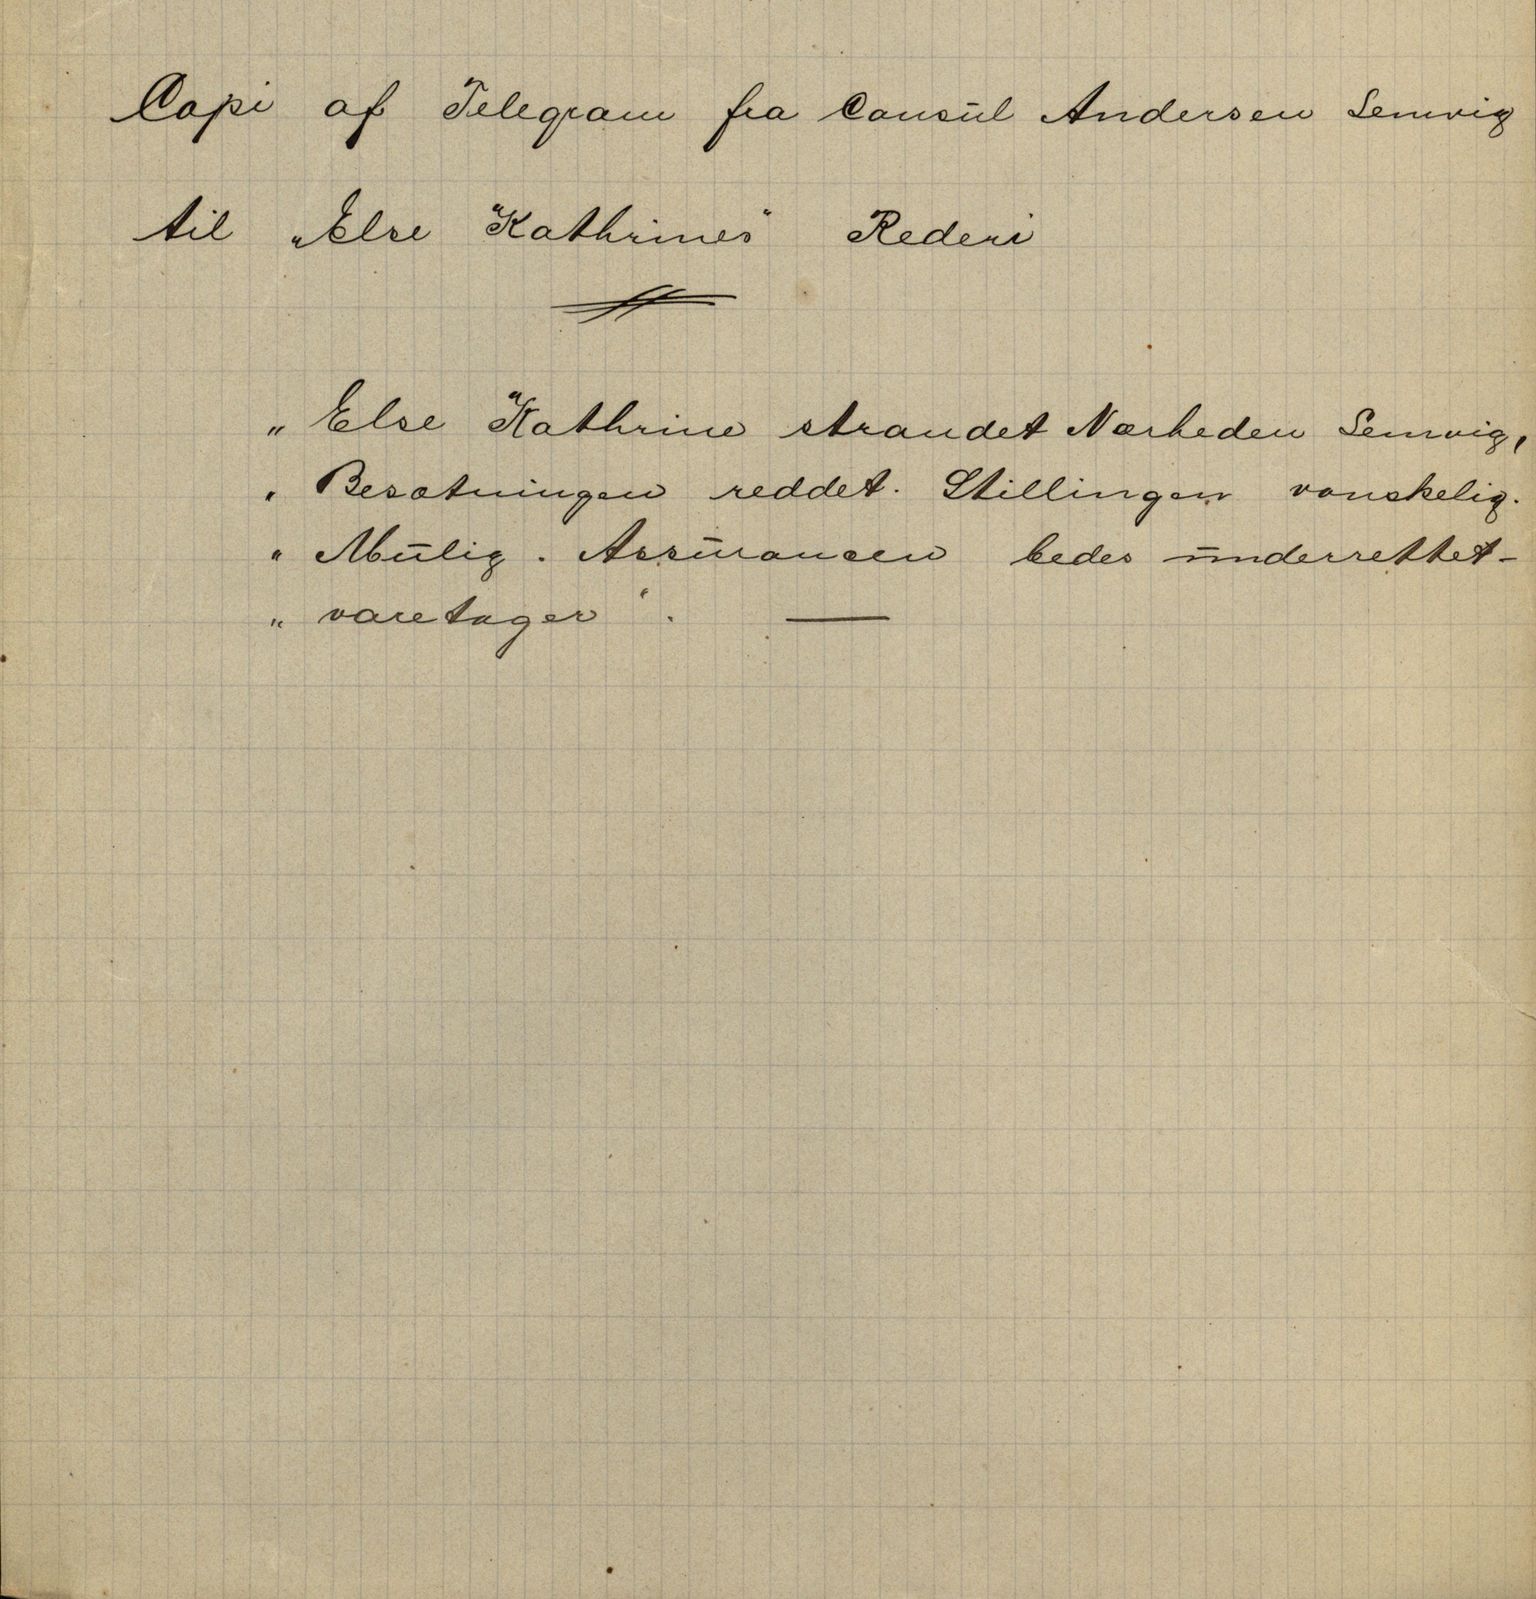 Copi af Telegram fra Consul Andersen Lemvig
til „Else Kathrines" Rederi
„ Else Kathrine strandet Nærheden Lemvig,
„ Besætningen reddet. Stillingen vanskelig.
„ Mulig. Assurancen bedes underrettet –
„ varetager". —